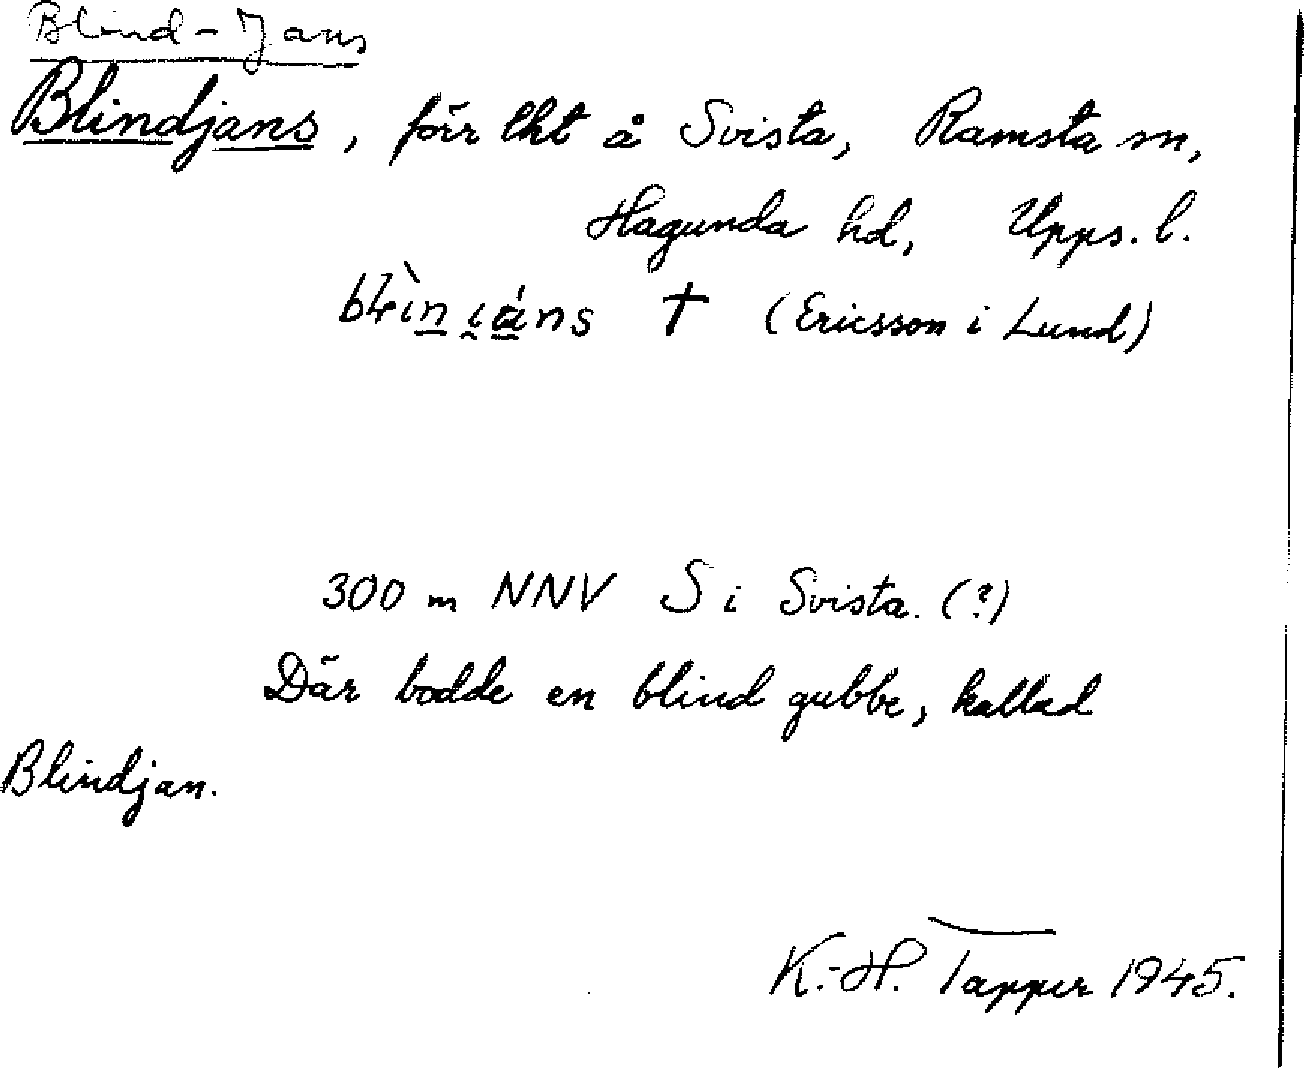 Blind-Jans
Blindjans, förr lht å Svista, Ramsta sn,
Hagunda hd, Upps. l.
† (Ericsson i Lund)
300 m NNV S i Svista. (?)
Där bodde en blind gubbe, kallad
Blindjan.
K.-H. Tapper 1945.